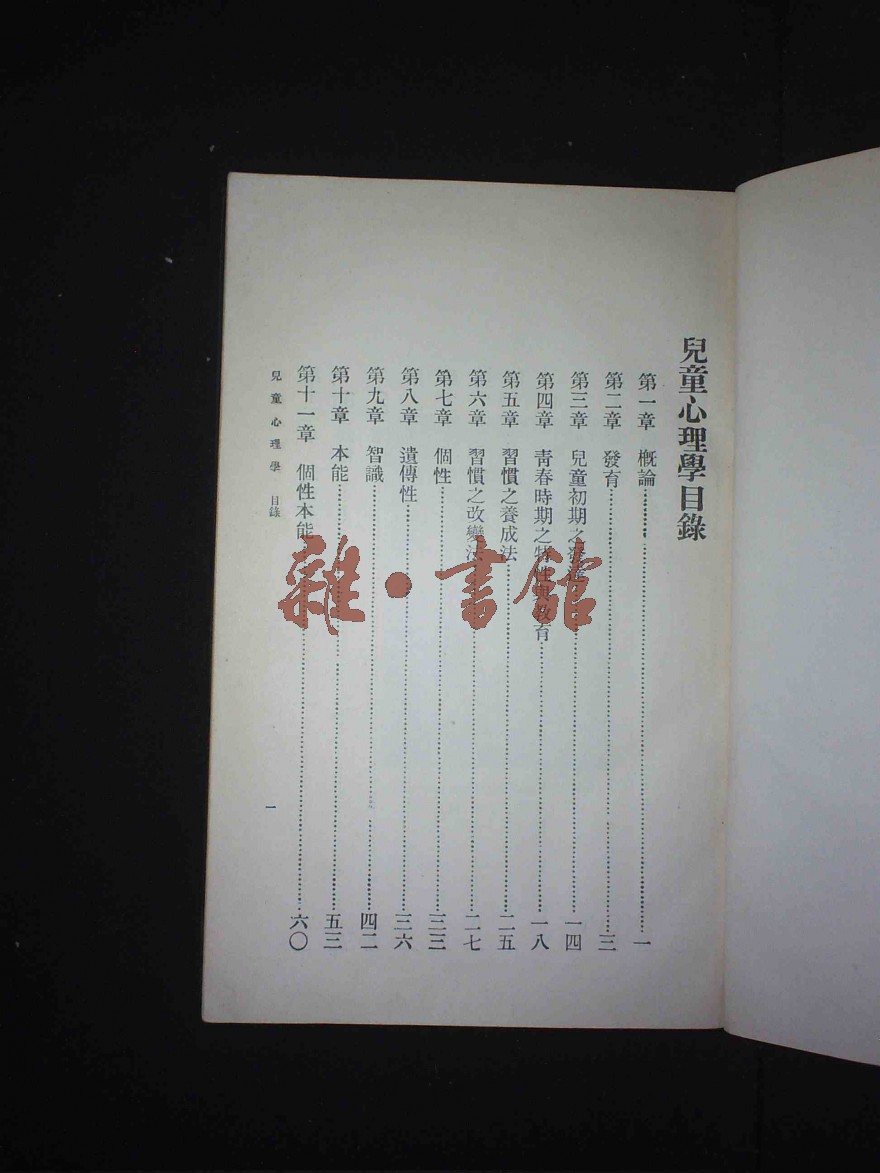 兒童心理學目錄
第一章 概論 一
第二章 發育 三
第三章 兒童初期之發達 一四
第四章 靑春時期之特性與教育 一八
第五章 習慣之養成法 二五
第六章 習慣之改變法 二七
第七章 個性 三三
第八章 遺傳性 三六
第九章 智識 四二
第十章 本能 五三
第十一章 個性本能 六〇
兒童心理學 目錄 一
雜·書館